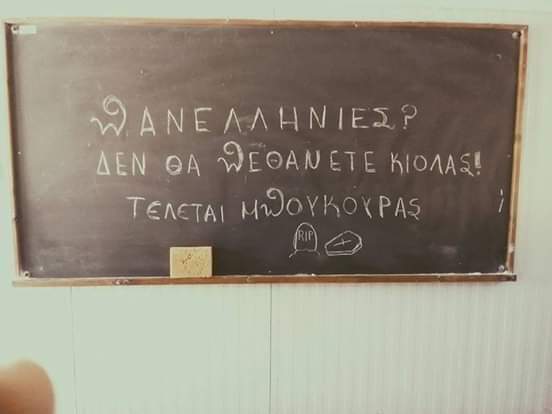 ΠΑΝΕΛΛΗΝΙΕΣ?
ΔΕΝ ΘΑ ΠΕΘΑΝΕΤΕ ΚΙΟΛΑΣ!
ΤΕΛΕΤΑΙ ΜΠΟΥΚΟΥΡΑΣ
RIP